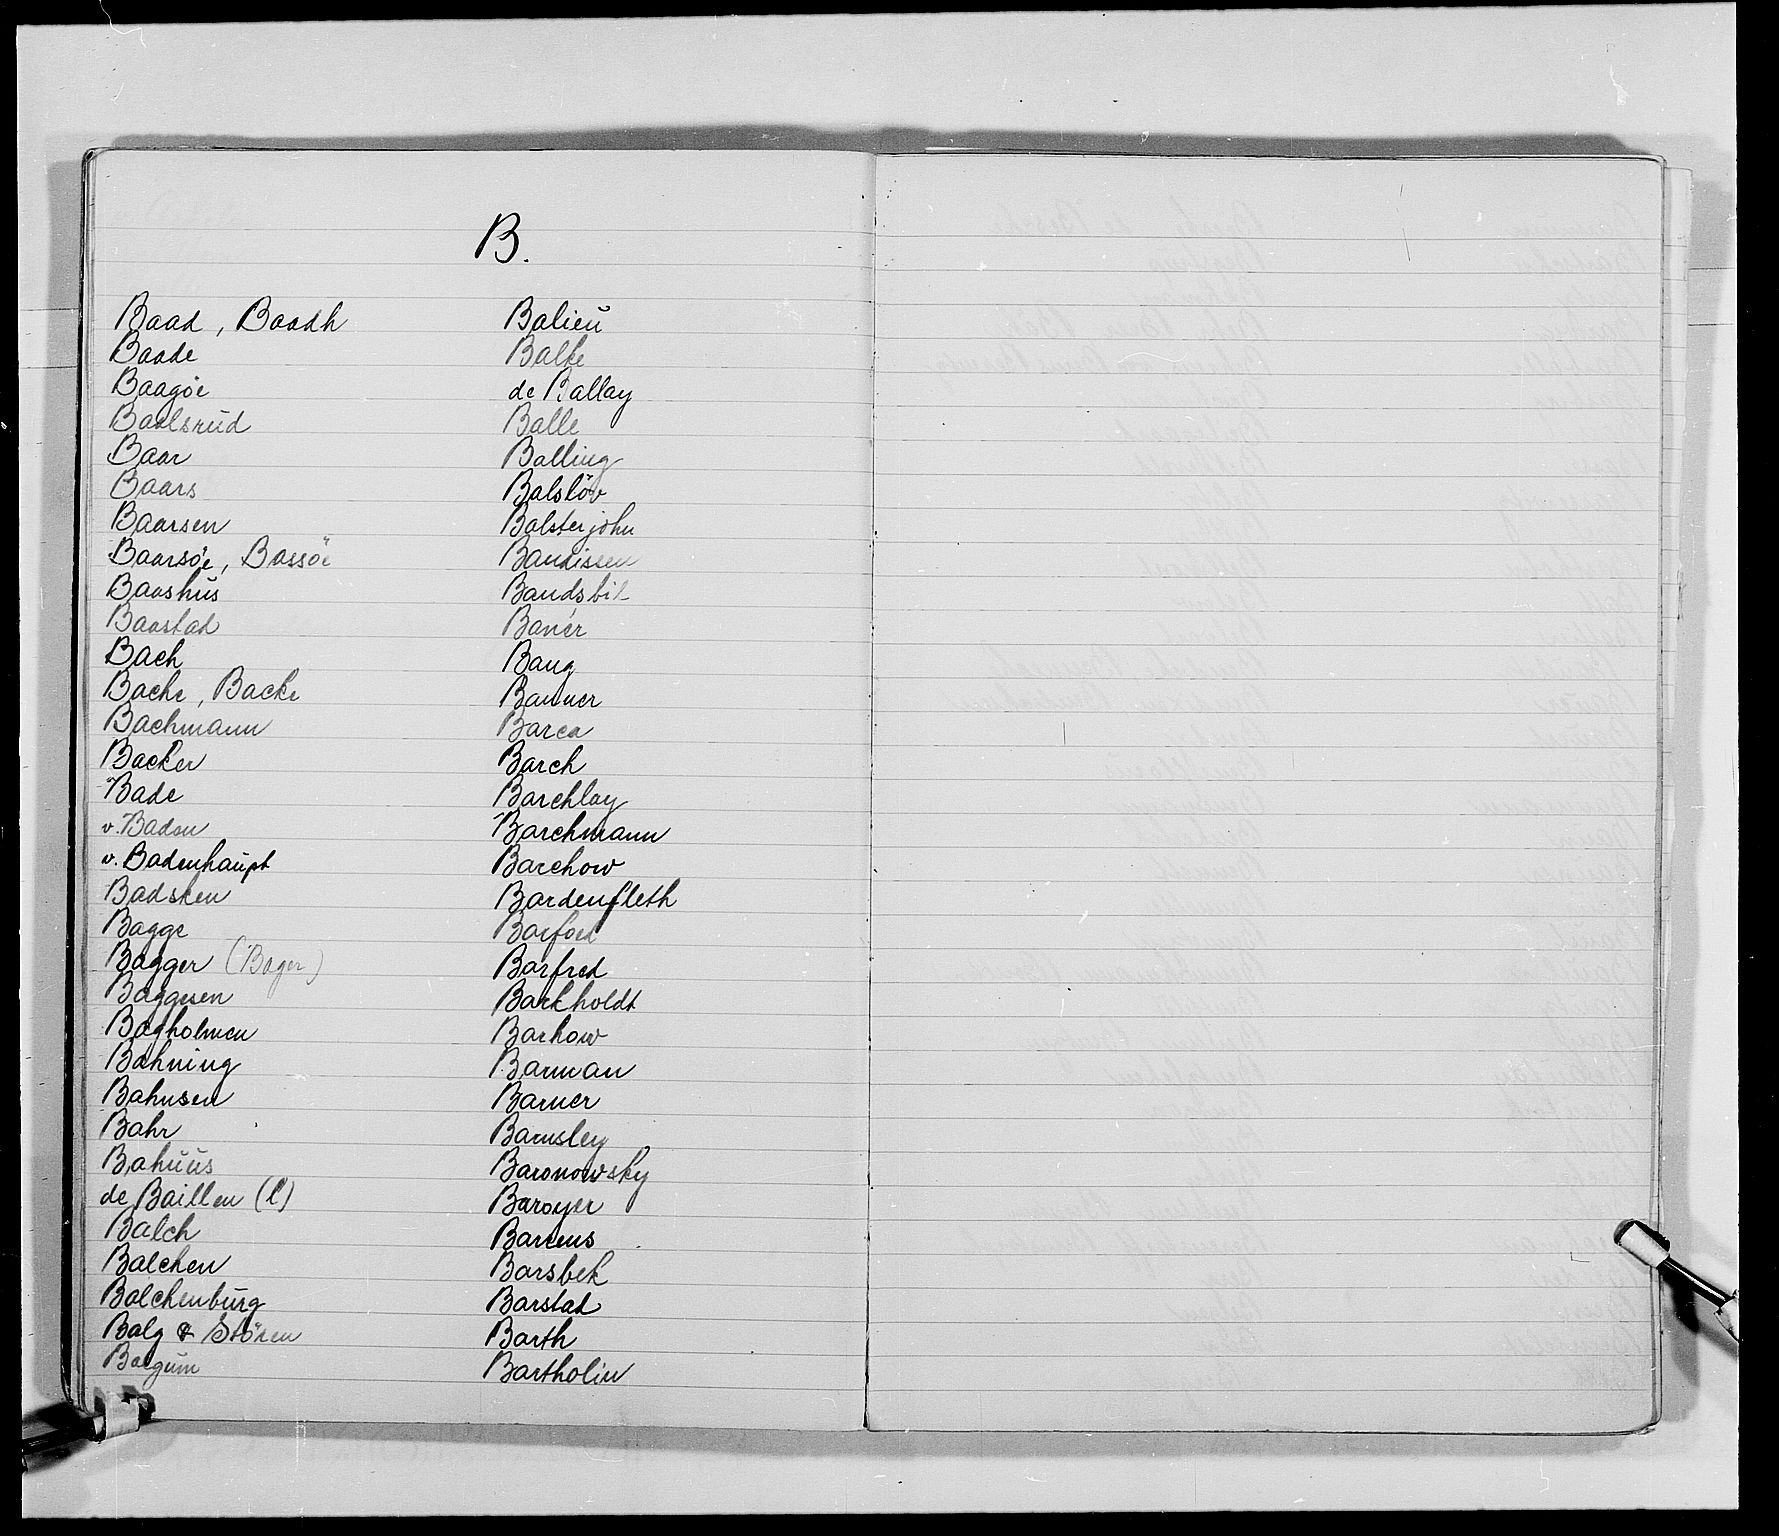 B.
Baad, Baadh
Baade
Baagöe
Baalsrud
Baar
Baars
Baarsen
Baarsöe, Bassöe
Baashus
Baastad
Bach
Bache, Backe
Bachmann
Backer
Bade
v. Baden
v. Badenhaupt
Badsken
Bagge
Bagger (Bager)
Baggesen
Bagholmen
Bahning
Bahnsen
Bahr
Bahuus
de Baillen (l)
Balch
Balchen
Balchenburg
Balg & Stören
Balgum
Balieu
Balke
de Ballay
Balle
Balling
Balslöv
Balsterjohn
Baudissen
Bandsbil
Banér
Bang
Banner
Barca
Barch
Barchlay
Barchmann
Barchow
Bardenfleth
Barfoed
Barfred
Barkholdt
Barkow
Barman
Barner
Barnsley
Baronowsky
Baroyer
Barsbek
Barstad
Barth
Bartholin